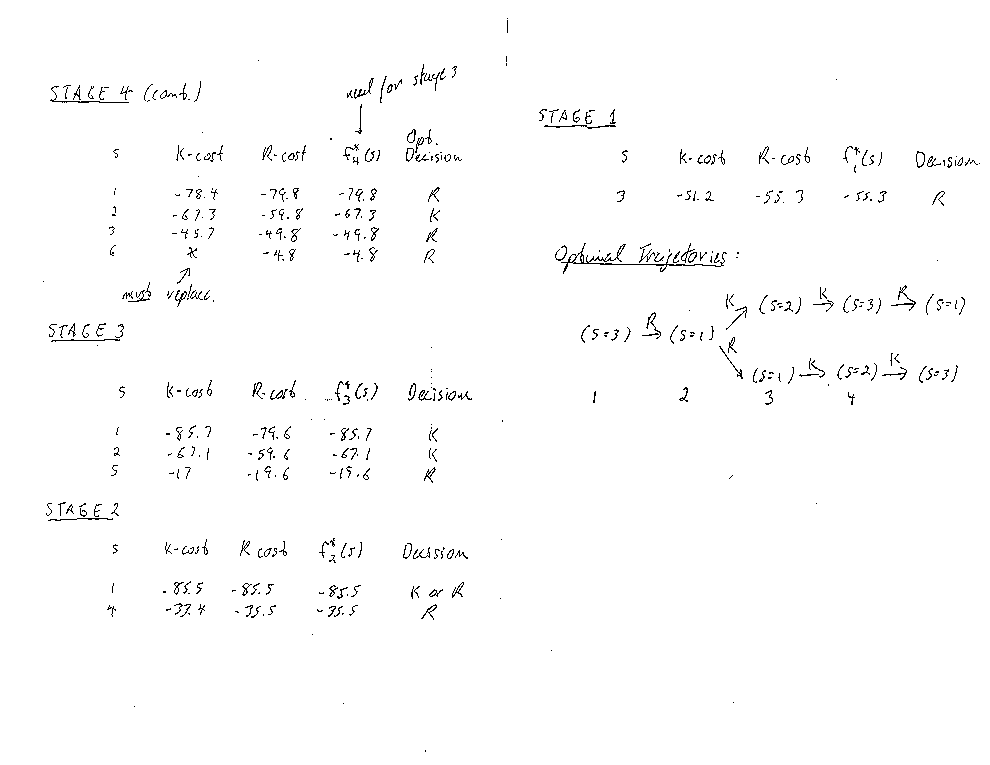 STAGE 4 (cont.)
need for stage 3
S K-cost R-cost f₄*(s) Opt. Decision
1 -78.4 -79.8 -79.8 R
2 -67.3 -59.8 -67.3 K
3 -45.7 -49.8 -49.8 R
6 X -4.8 -4.8 R
must replace.
STAGE 3
S K-cost R-cost f₃*(s) Decision
1 -85.7 -79.6 -85.7 K
2 -67.1 -59.6 -67.1 K
5 -17 -19.6 -19.6 R
STAGE 2
S K-cost R cost f₂*(s) Decision
1 -85.5 -85.5 -85.5 K or R
4 -33.4 -35.5 -35.5 R
STAGE 1
S K-cost R-cost f₁*(s) Decision
3 -51.2 -55.3 -55.3 R
Optimal Trajectories:
K (S=2) K→ (S=3) R→ (S=1)
(S=3) R→ (S=1)
R (S=1) K→ (S=2) K→ (S=3)
1 2 3 4